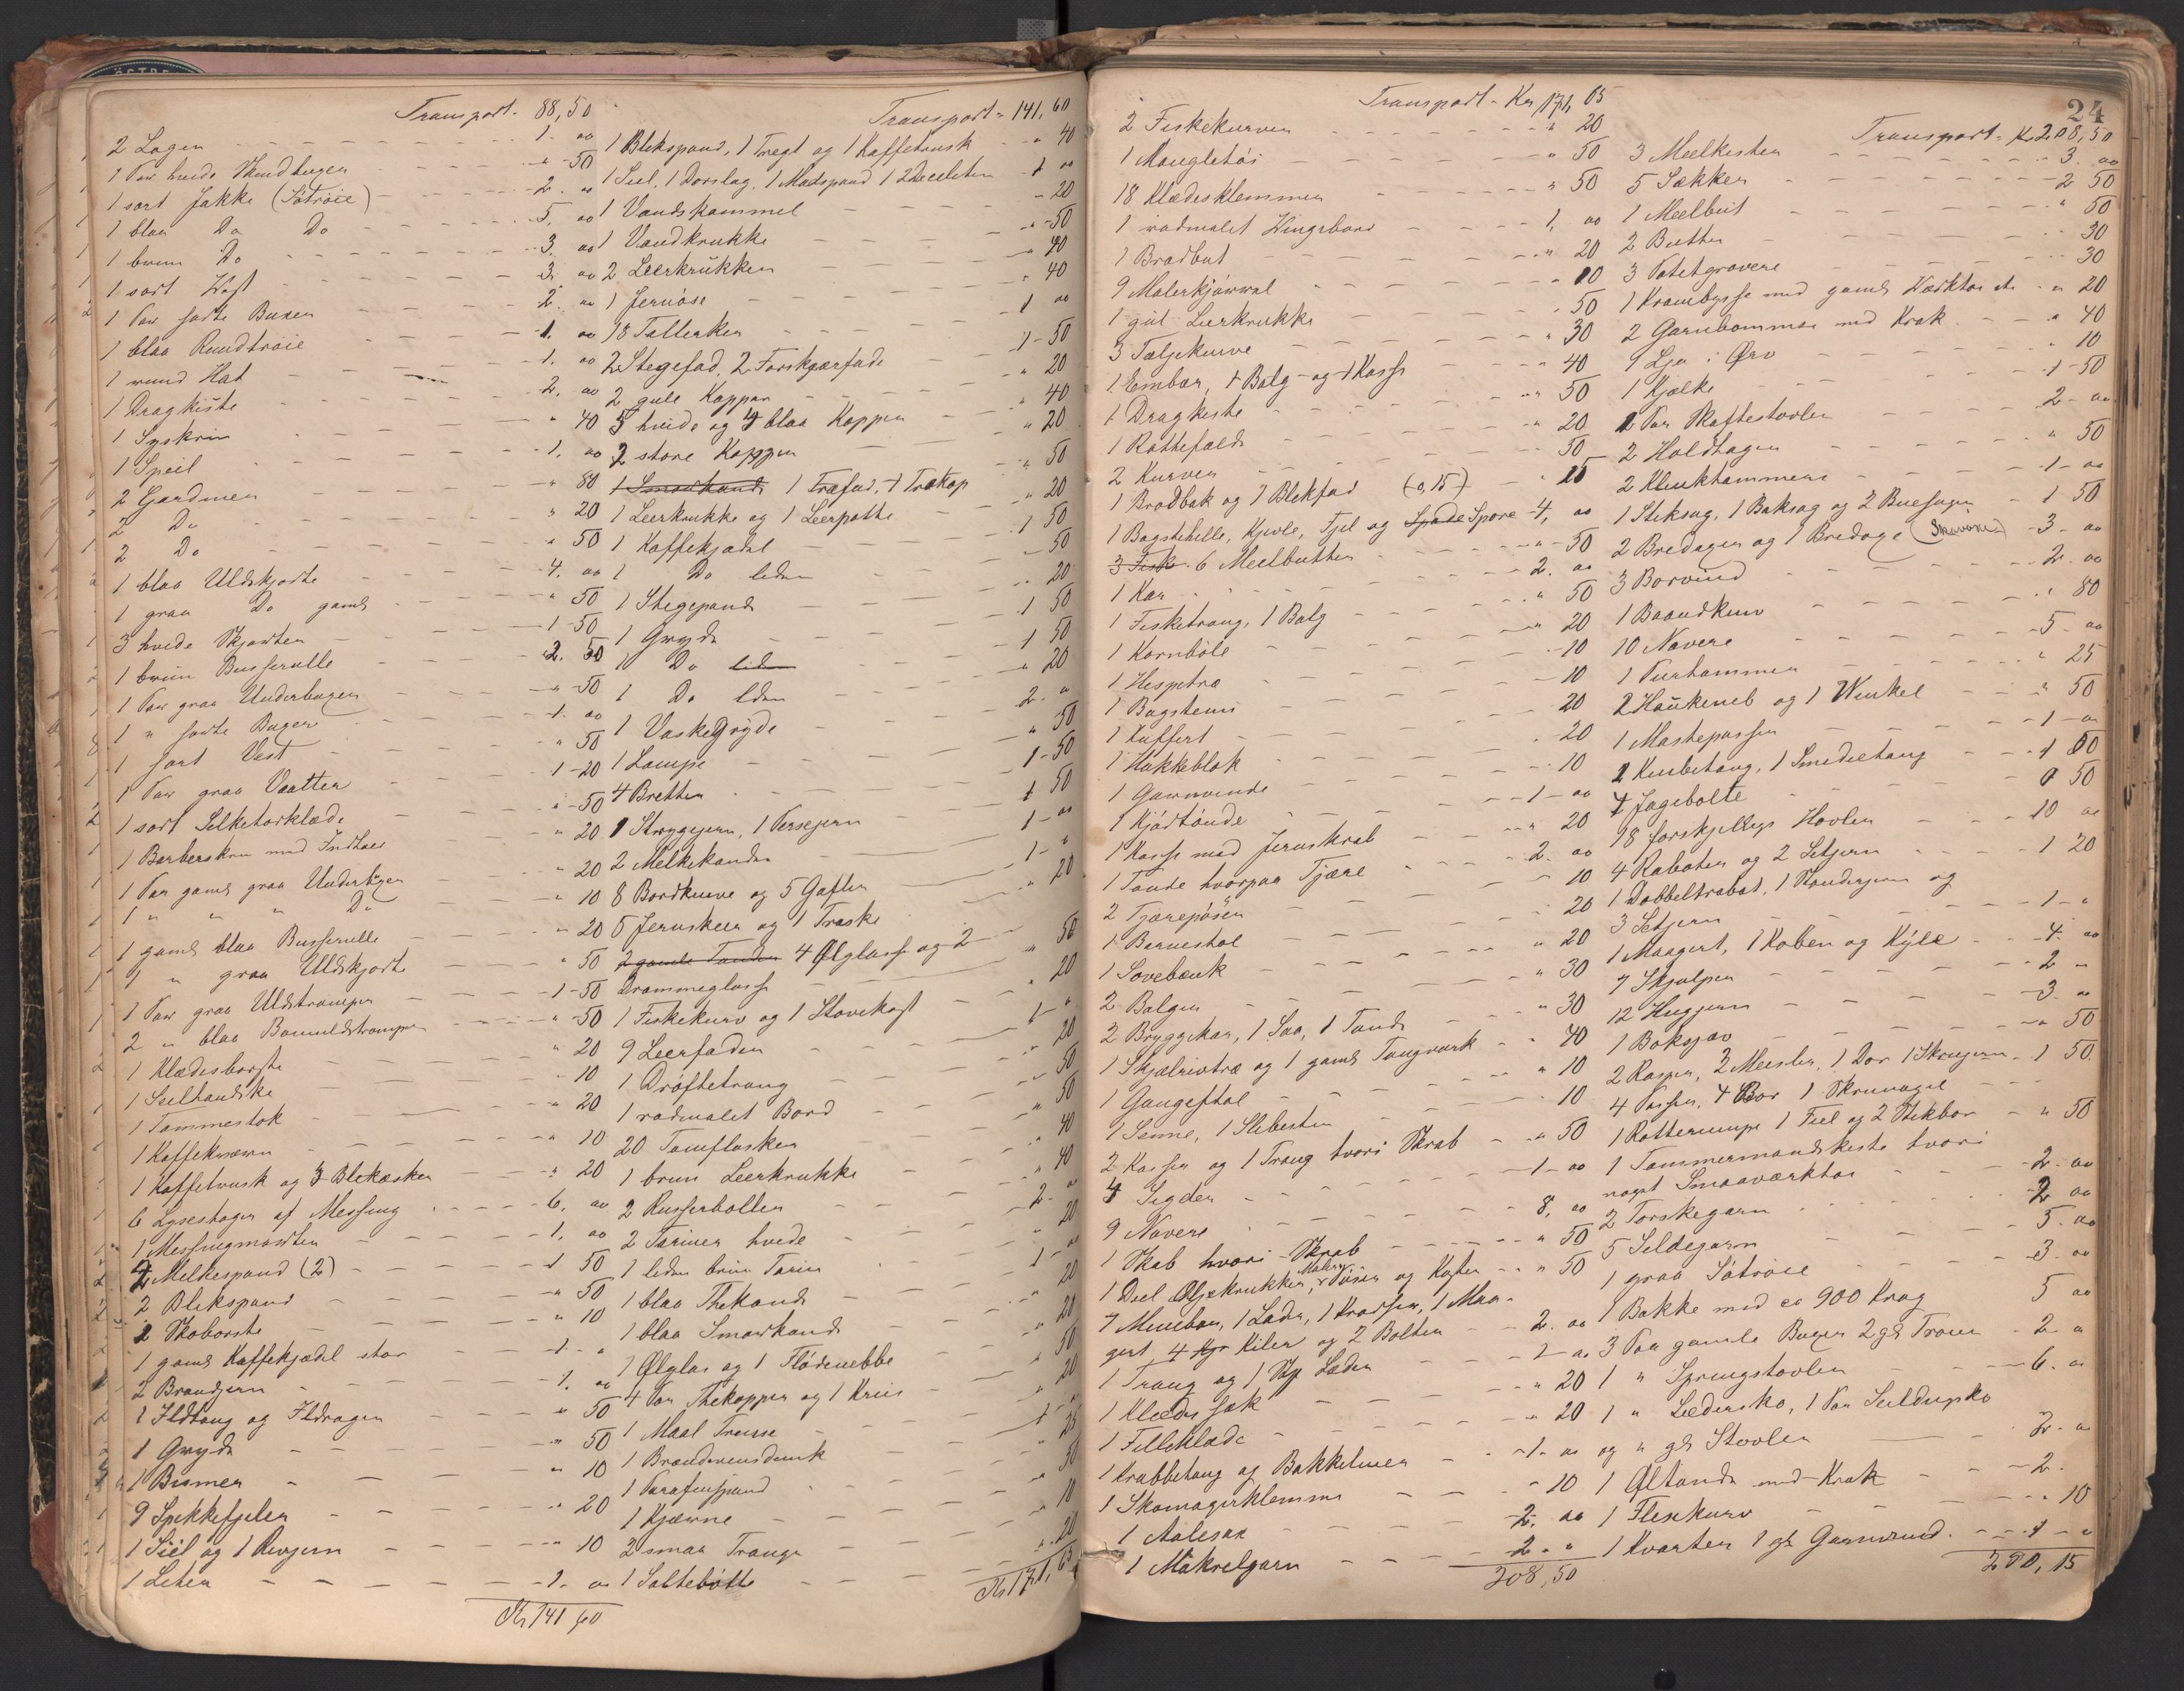 Transport - 88,50
2 Lagen - 1. oo
1 Par hvide Skindbuxer " - 50
1 sort Jakke (Søtrøie) - 2. oo
1 blaa Do Do - 5. oo
1 brun Do - 3. oo
1 sort Vest - 3. oo
1 Par sorte Buxer - 2. oo
1 blaa Rundtrøie - 1. oo
1 rund Hat - 1. oo
1 Dragkiste - 2. oo
1 Syskrin " 40
1 Speil - 1. oo
2 Gardiner " 80
2 Do " 20
2 Do " 50
1 blaa Uldskjorte - 4. oo
1 graa Do gaml " 50
3 hvide Skjorter - 1 - 50
1 brun Busserulle 2. 50
1 Par graa Underbuxer " - 50
1 " sorte Buxer - 1. oo
1 sort Vest " 50
1 Par graa Vaatter 1 - 20
1 sort Silketørklæde " - 50
1 Barberskrin med Indhold " 20
1 Par gaml graa Underbuxer " 20
1 " " " Do " 10
1 gaml blaa Busserulle " 20
1 " graa Uldskjorte " 50
1 Par graa Uldstrømper - 1 - 50
2 " blaa Bomuldstrømper " - 50
1 Klædesbørste " 20
1 Seelhandske - 10
1 Tommestok " 20
1 Kaffekværn " 10
1 Kaffebrusk og 3 Blikæsker " 20
6 Lysestager af Messing - 6. oo
1 Messingmorter - 1. oo
4 Melkespand (2) - 1 50
2 Blikspand " 50
2 Skobørste " 10
1 gaml Kaffekjedel stor - 1 - "
2 Brandjern - 1. oo
1 Ildtang og Ildrager " 50
1 Gryde " 50
1 Bismer " 10
9 Spikkefjeler " 20
1 Siil og 1 Rivjern " 10
1 Liter - 1. oo
Kr 141,60
Transport - 141,60
1 Blikspand, 1 Tregt og 1 Kaffebrusk " 40
1 Siil, 1 Dørslag, 1 Madspand 1 2 Deciliter 1 oo
1 Vandskammel - 20
1 Vandkrukke " - 50
2 Leerkrukker " 40
1 Jernøse " 40
18 Tallerker 1 oo
2 Stegefad, 2 Torskgjærfade 1 - 50
2 gule Kopper " 20
5 hvide og 4 blaa Kopper " 40
2 store Kopper " 20
1 Smørkande 1 Træfad, 1 Trækop " 50
1 Leerkrukke og 1 Leerpotte " 20
1 Kaffekjedel 1 50
1 Do liden - 50
1 Stegepande " 20
1 Gryde 1 50
1 Do liden 1 50
1 Do liden " 20
1 Vaskegryde 2. "
1 Lampe " 50
4 Bretter 1 - 50
1 Strygejern, 1 Persejern 1 50
2 Melkekander 1 - oo
8 Bordknive og 5 Gafler 1 - "
5 Jernskeer og 1 Træske " 20
2 gamle Tønder 4 Ølglasse og 2
Drammeglasse " 50
1 Fiskekurv og 1 Stovekost " 20
9 Leerfader 1 - "
1 Drøftetraug " 20
1 rødmalet Bord " 50
20 Tomflasker " 50
1 brun Leerkrukke " 40
2 Punsebollen " 40
2 Teriner hvide 2. "
1 liden brun Terin " 20
1 blaa Thekande 1 - oo
1 blaa Smørkande " 20
1 Ølglas og 1 Flødenebbe " 20
4 Par Thekopper og 1 Kruus " 50
1 Maal Treuse " 20
1 Brændevinsdunk 1 - oo
1 Parafinspand " 25
1 Kjærne " 50
2 smaa Trauge " 10
1 Saltebøtte " 20
Kr 171,65
24
Transport - Kr 171,65
2 Fiskekurver " 20
1 Mangletøi " 50
18 Klædesklemmer " 50
1 rødmalet Hengebord - 1, oo
1 Brødbut " 20
9 Malerkjørrel " 10
1 gul Leerkrukke " 50
3 Tæljekurve " 30
1 Embar, 1 Balg og 1 Kasse " 40
1 Dragkiste " 50
1 Rottefælde " 20
2 Kurver " 50
1 Brødbak og 1 Blikfad (0,15) " 15
1 Bagstehelle, Kjevle, Fjel og Spade Spore - 4, oo
3 Fisk 6 Meelbutter " 50
1 Kar - 2. oo
1 Fisketraug, 1 Balg " 50
1 Kornbøle " 20
1 Hespetræ - 10
1 Bogsteins - 10
1 Kuffert - 20
1 Hakkeblok - 20
1 Garnvinde - 10
1 Kjødtønde - 1 - oo
1 Kasse med Jernskrab " 20
1 Tønde hvorpaa Tjære 2. oo
2 Tjærepøser " 10
1 Barnestol " 20
1 Sovebænk " 20
2 Balger " 30
2 Bryggekar, 1 Saa, 1 Tønde " 30
1 Skjælrivtræ og 1 gaml Tougværk " 40
1 Gangestol " 10
1 Senne, 1 Slibesten - 10
2 Kasser og 1 Traug hvori Skrab " 50
4 Sigder - 1 - oo
9 Navere - 8, oo
1 Skab hvori Skrab " 50
1 Deel Oljekrukker, Maler Pøser og Kaster " 50
7 Minebor, 1 Lader, 1 Kradser, 1 Maa-
gert 4 Kiler og 2 Bolter - 2. oo
1 Traug og 1 Læder - 1 - oo
1 Klædesæk " 20
1 Filleklæde " 20
1 Krabbetang og Bakkeliner - 1 - oo
1 Skomagerklemme " 10
1 Aalesax 2. oo
1 Makrelgarn 2. "
208,50
Transport - Kr 208,50
3 Meelkister 3. oo
5 Sækker 2 50
1 Meelbut " 50
2 Butter " 30
3 Potetgravere " 30
1 Krambysse med gaml Værktøi etc " 20
2 Garnbommer med Krak " 40
1 Lja i Orv " 10
1 Kjælke 1 - 50
2 Par Skaftestøvler 2 - oo
2 Holdhager " 50
2 Klinkhammere 1 - oo
1 Stiksag, 1 Baksag og 2 Buesager 1 50
2 Bredøxer og 1 Bredøxe 3 - oo
3 Borvind 2. oo
1 Baandkniv " 80
10 Navere - 5. oo
1 Turhammer " 25
2 Haukeneb og 1 Vinkel " 50
1 Mastepasser - 1 - oo
2 Knibetang, 1 Smedietang 1 50
4 Jagebolte 1 50
18 forskjellige Høvler 10 oo
4 Rabater og 2 Setjern 1 20
1 Dobbeltrabat, 1 Skruejern og
3 Setjern 1 - "
1 Maagert, 1 Koben og Kyle 4. oo
7 Skjølper 2 "
12 Hugjern 3. oo
1 Boksjøv " 50
2 Rasper, 3 Meisler, 1 Dor 1 Skrujern 1 50
4 Passer, 4 Bor 1 Skrunagel
1 Rotterumpe 1 Fiil og 2 Stikbor " 50
1 Tømmermandskiste hvori
noget Smaaværktøi 2. oo
2 Torskegarn 2 oo
5 Sildegarn 5. oo
1 graa Søtrøie 3. oo
1 Bakke med ca 900 Krog 5 oo
3 Par gamle Buxer 2 gl Trøier 2. "
1 " Springstøvler - 6. oo
1 " Lædersko, 1 Par Seildugsko
og " gl Støvler 2. "
1 Øltønde med Krak 2.
1 Flexkurv " 10
1 Kvarter 1 gl Garnvind 1 - "
280,15